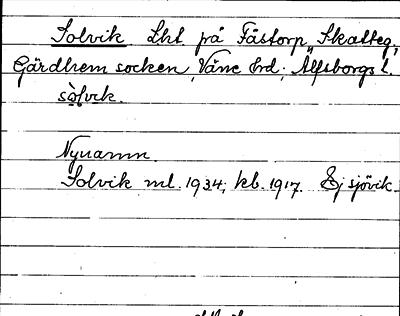 Solvik Lht på Fästorp, Skatteg,
Gärdhem socken, Väne hd; Älfsborgs l.
sòlvik.
Nynamn.
Solvik ml. 1934, kb. 1917. Ej sjövik.